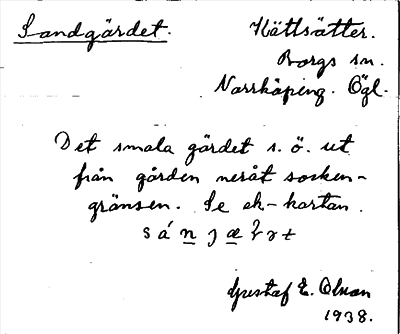 Sandgärdet.
Kättsätter.
Borgs sn.
Norrköping. Ögl.
Det smala gärdet s. ö. ut
från gården neråt socken-
gränsen. Se ek-kartan.
Gustaf E. Olsson
1938.